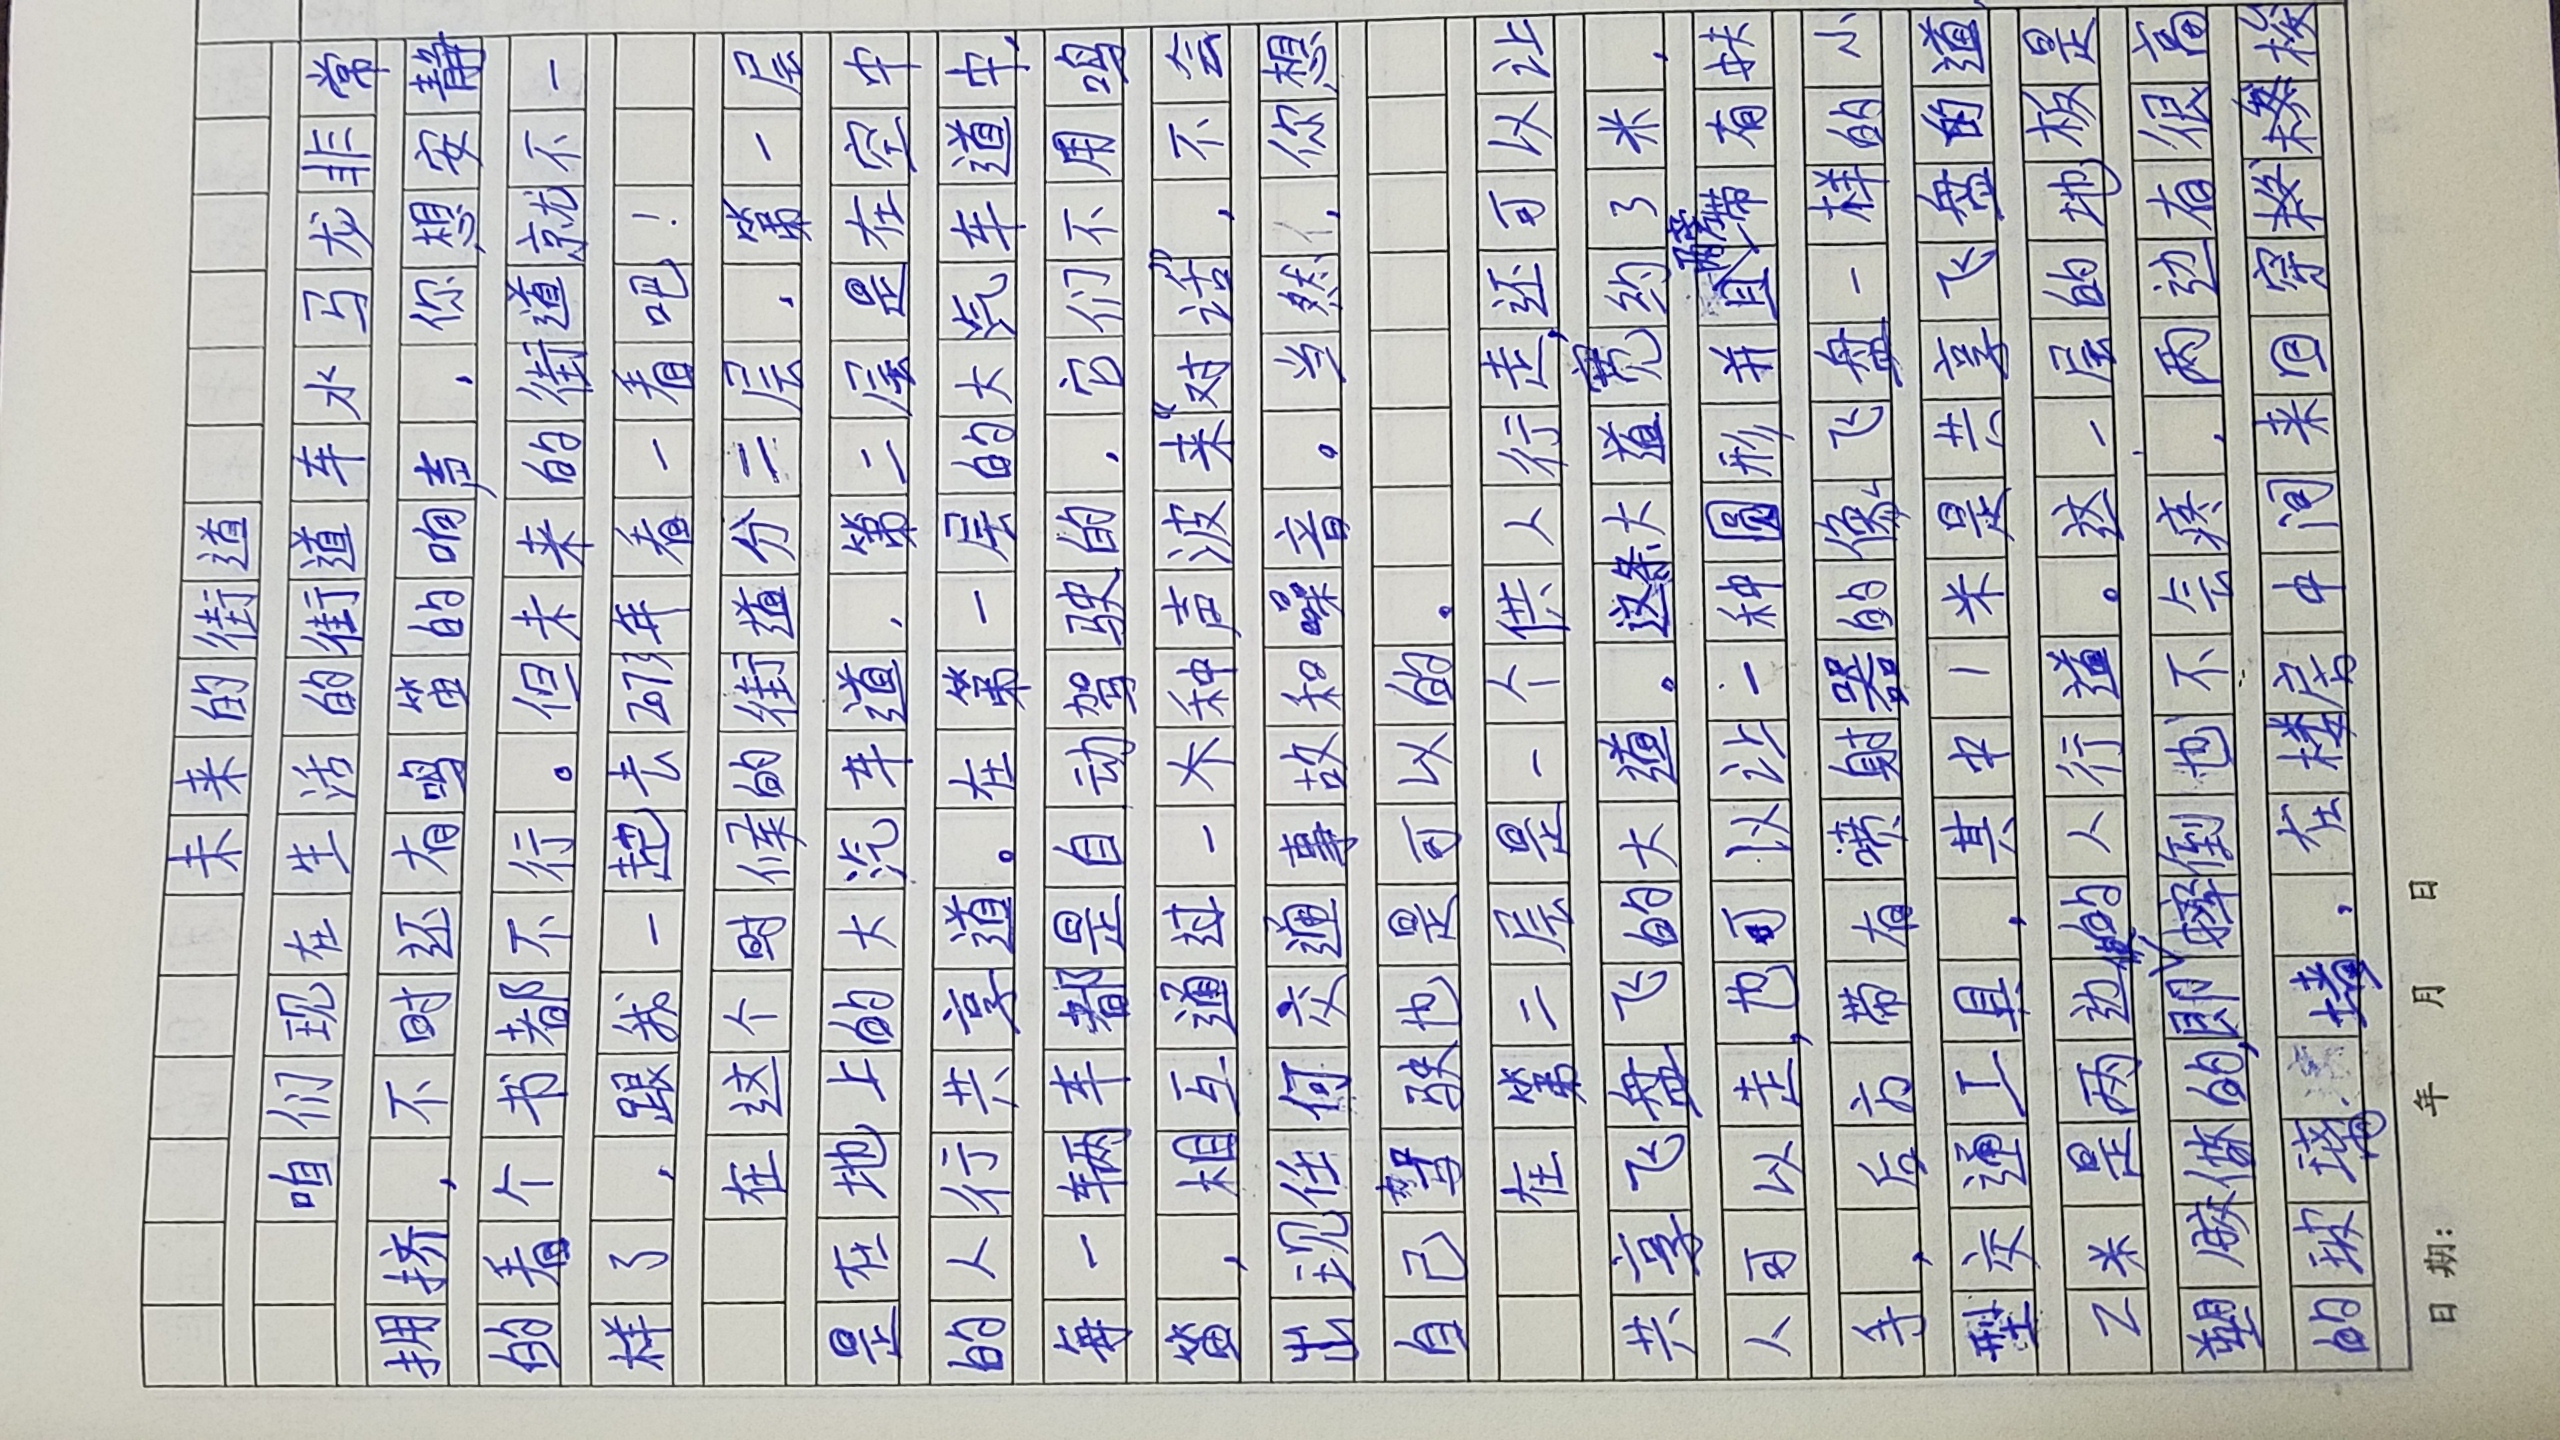 未来的街道
咱们现在生活的街道车水马龙非常
拥挤，不时还有鸣笛的响声，你想安静
的看个书都不行。但未来的街道京尤不一
样了，跟我一起去2073年看一看吧！
在这个时候的街道分二层，第一层
是在地上的大汽车道，第二层是在空中
的人行共享道。在第一层的大汽车道中，
每一辆车都是自动驾驶的，它们不用鸣
笛，相互通过一木种声波来“对话”，不会
出现任何交通事故和噪音。当然，你想
自己驾驶也是可以的。
在第二层是一个供人行走，还可以让
共享飞盘飞的大道。这条大道宽约3米，
人可以走，也可以让一种圆形并且两旁带有扶
手，后方带有喷射器的像飞盘一样的小
型交通工具，其中1米是共享飞盘的道
2米是两边的人行道。这一层的地板是
塑胶做的，即使摔倒也不会疼，两边有很高
的玻璃墙，在楼房中间来回穿梭
日期： 年 月 日